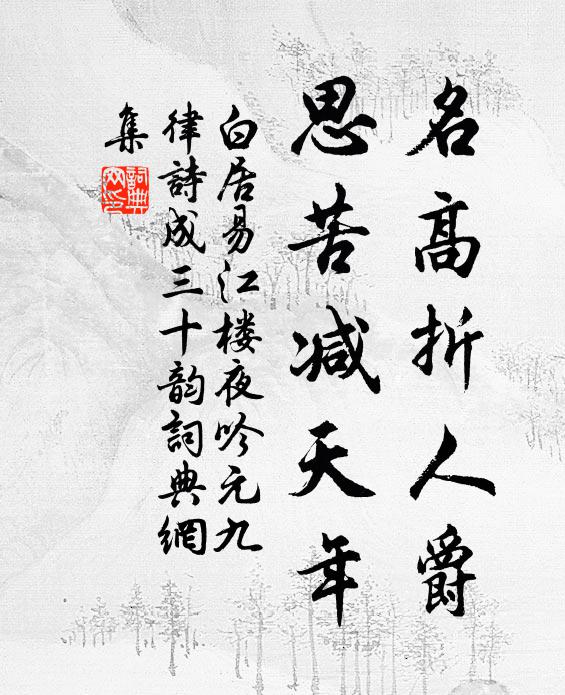 名高折人爵
思苦减天年
白居易江楼夜吟元九
律詩成三十韵詞典網
集
詞典
网印